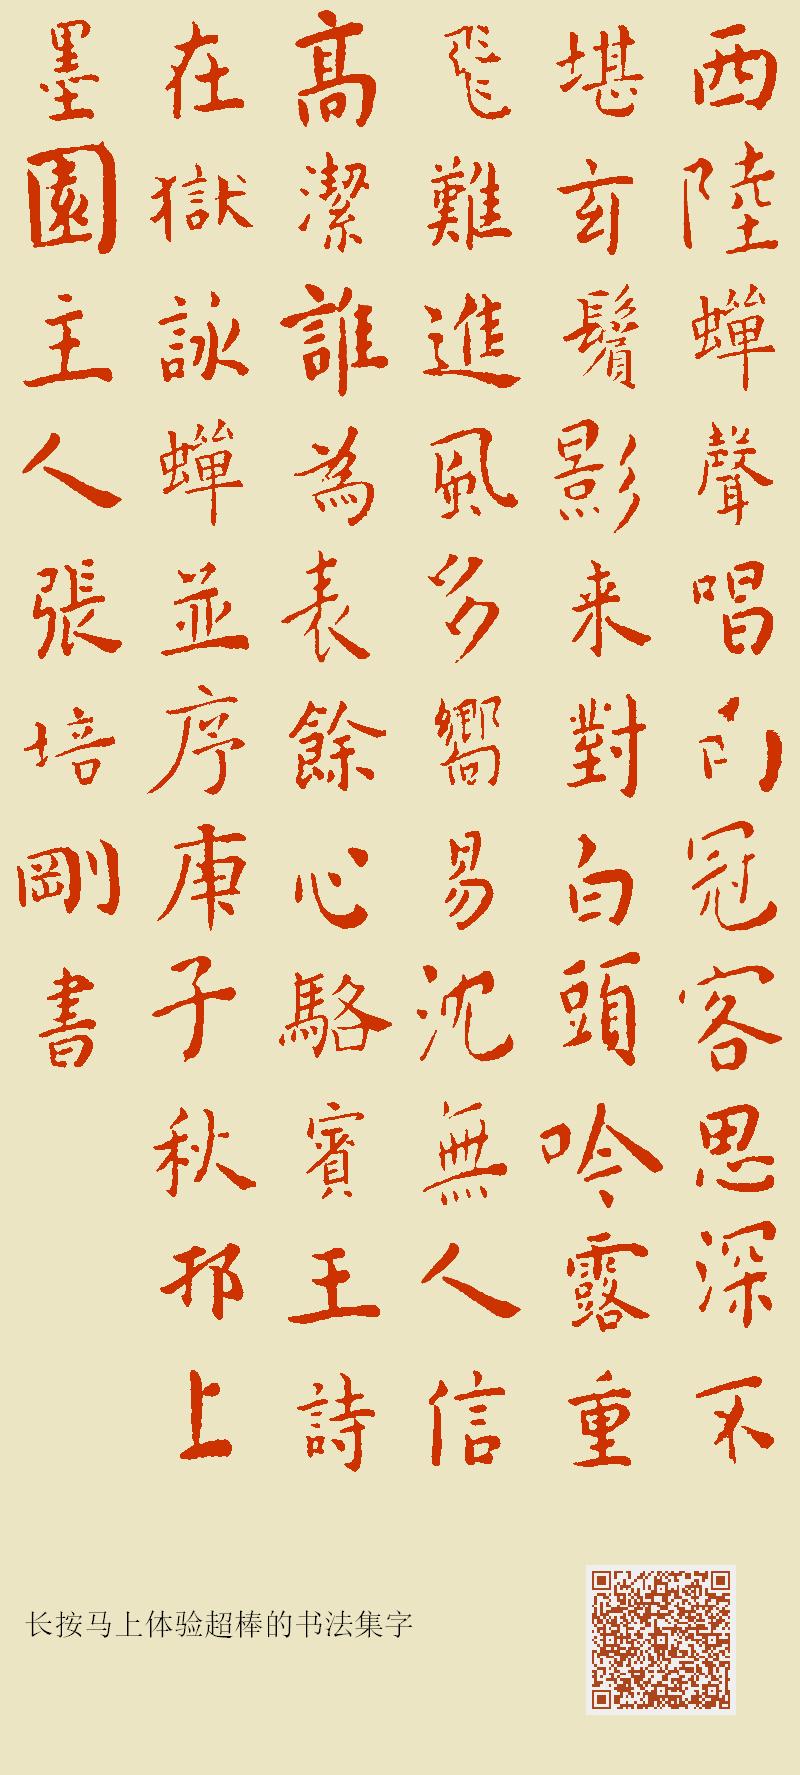 西陸蟬聲唱南冠客思深不
堪玄鬢影来對白頭吟露重
飛難進風多嚮易沈無人信
高潔誰為表餘心駱賓王詩
在獄詠蟬並序庚子秋邗上
墨園主人張培剛書
长按马上体验超棒的书法集字